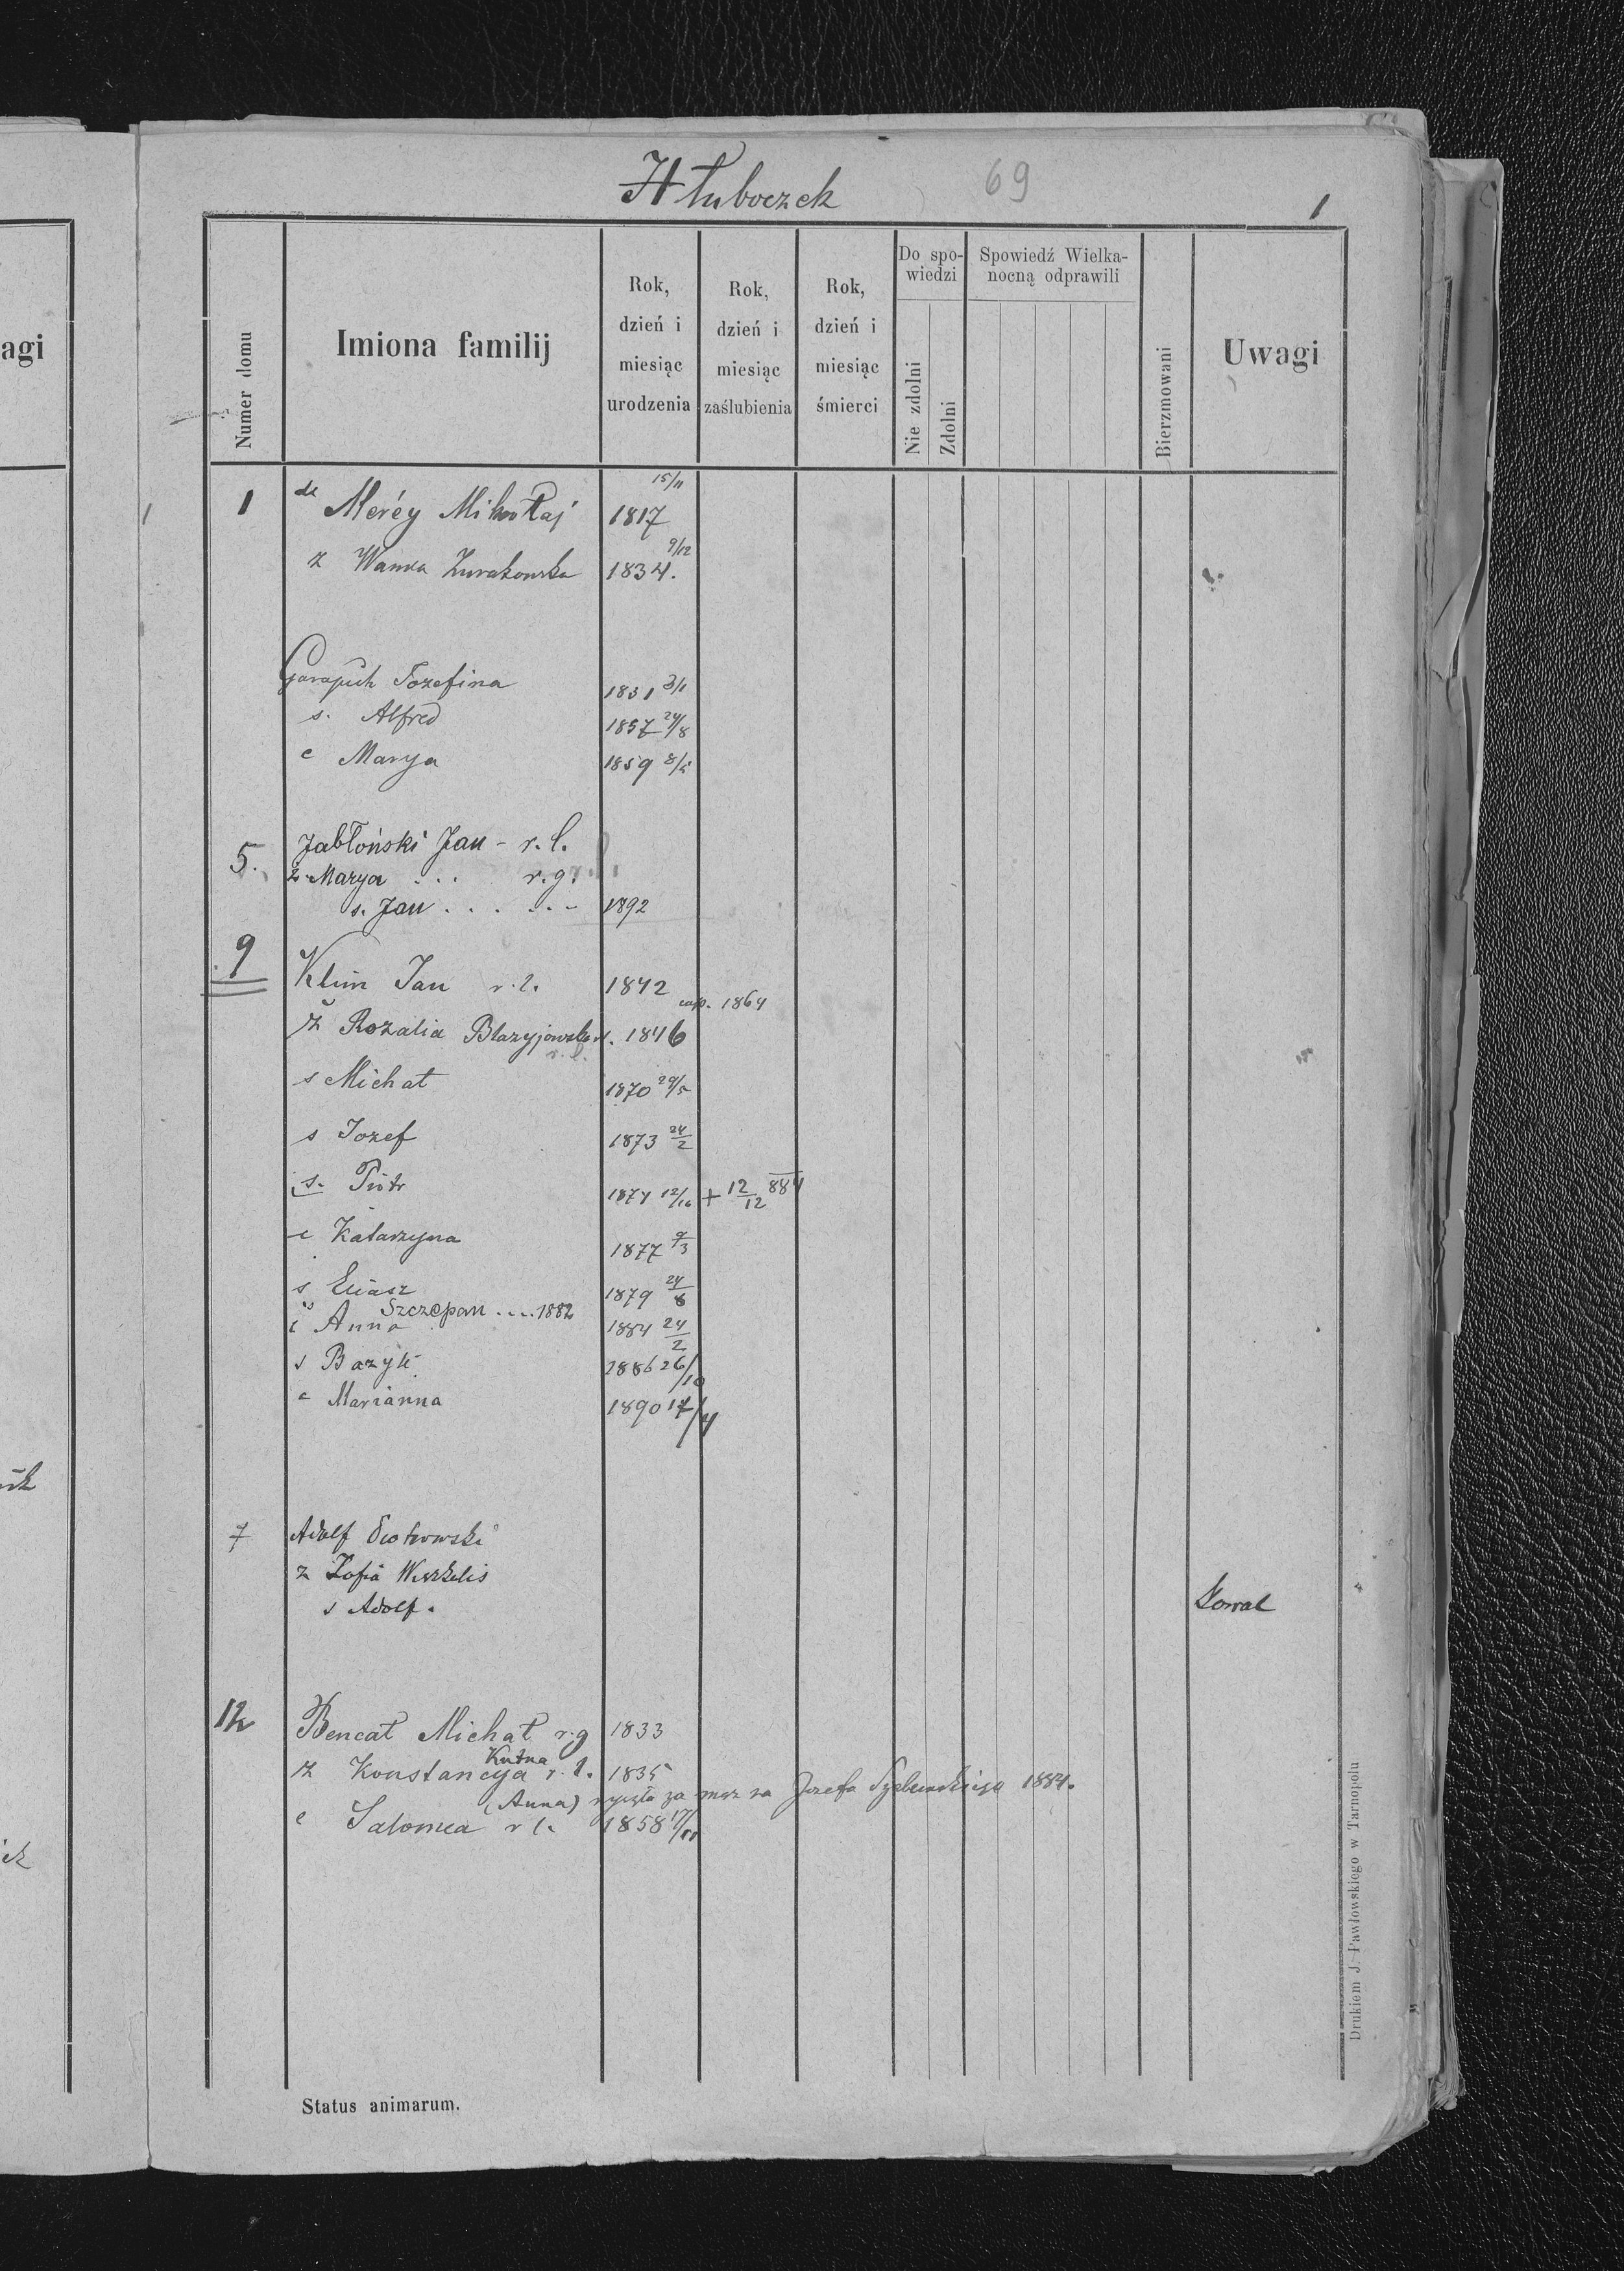 agi
Hłuboczek 69 1
Numer domu
Imiona familij
Rok, dzień i miesiąc urodzenia
Rok, dzień i miesiąc zaślubienia
Rok, dzień i miesiąc śmierci
Do spowiedzi
Nie zdolni
Zdolni
Spowiedź Wielkanocną odprawili
Bierzmowani
Uwagi
1 de Meréy Mikołaj 1817 15/11
ż Wanda Żurakowska 1834. 9/12
Garapich Jozefina 1831 3/1
s. Alfred 1857 24/8
c Marya 1859 8/5
5. Jabłoński Jan - r. l.
ż. Marya . . . r. g.
s. Jan . . . . . . 1892
9 Klim Jan r. l. 1842
cop. 1864
ż Rozalia Błazyjowska r. 1846
r. l.
s Michał 1870 29/5
s Jozef 1873 24/2
s. Piotr 1874 12/10 + 12/12 884
c Katarzyna 1877 9/3
s Eliasz 1879 24/8
s Szczepan .... 1882
c Anna 1884 24/2
s Bazyli 1886 26/10
c Marianna 1890 17/4
7 Adolf Piotrowski
ż Zofia
s Adolf. Kowal
12 Bencal Michał r. g 1833
Kutna
ż Konstancya r. l. 1835
(Anna) wyszła za mąż za Jozefa 1884.
c Salomea r l. 1858 17/11
Status animarum.
Drukiem J. Pawłowskiego w Tarnopolu